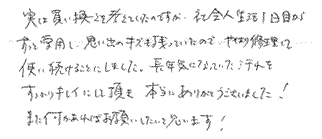 実は買い換えも考えていたのですが、社会人生活1日目から
ずっと愛用し、思い出のキズも残っていたので、やはり修理して
使い続けることにしました。長年気になっていた汚れを
すっかりキレイにして頂き 本当にありがとうございました！
また何かあればお願いしたいと思います！